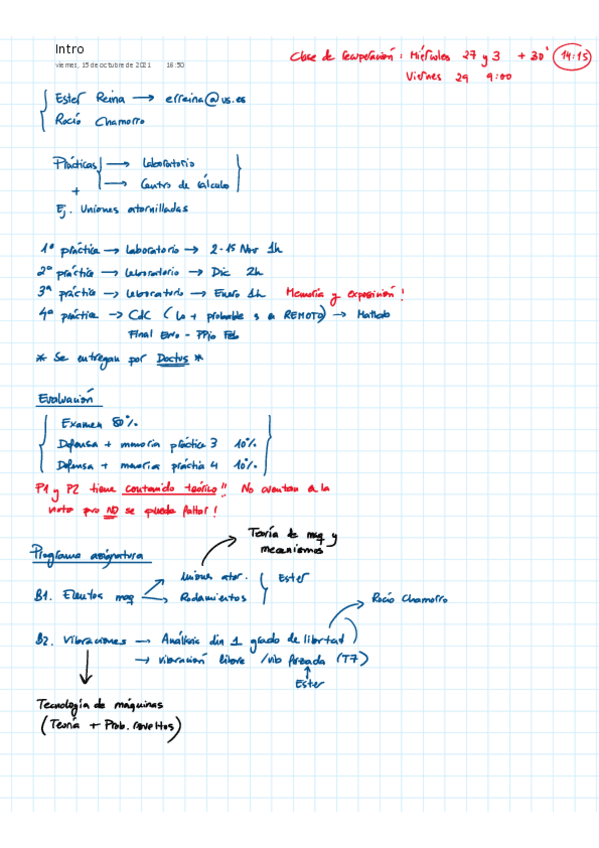 Intro
viernes, 15 de octubre de 2021 16:50
Clase de recuperación: Miércoles 27 y 3 + 30' 14:15
Viernes 29 9:00
Ester Reina → erreina@us.es
Rocío Chamorro
Prácticas → Laboratorio
+ → Centro de cálculo
Ej. Uniones atornilladas
1ª práctica → Laboratorio → 2-15 Nov 1h
2ª práctica → Laboratorio → Dic 2h
3ª práctica → Laboratorio → Enero 1h Memoria y exposición!
4ª práctica → CdC (Lo + probable s a REMOTO) → Matlab
Final Enero - PPio Feb
* Se entregan por Doctus *
Evaluación
Examen 80%
Defensa + memoria práctica 3 10%
Defensa + memoria práctica 4 10%
P1 y P2 tiene contenido teórico!! No cuentan a la
nota pero NO se puede faltar!
Teoría de maq y
mecanismos
Programa asignatura
Unione ator. Ester
B1. Elementos maq → Rodamientos
Rocío Chamorro
B2. Vibraciones → Análisis din 1 grado de libertad
→ vibración libre /vib forzada (T7)
Ester
Tecnología de máquinas
(Teoría + Prob. resueltos)